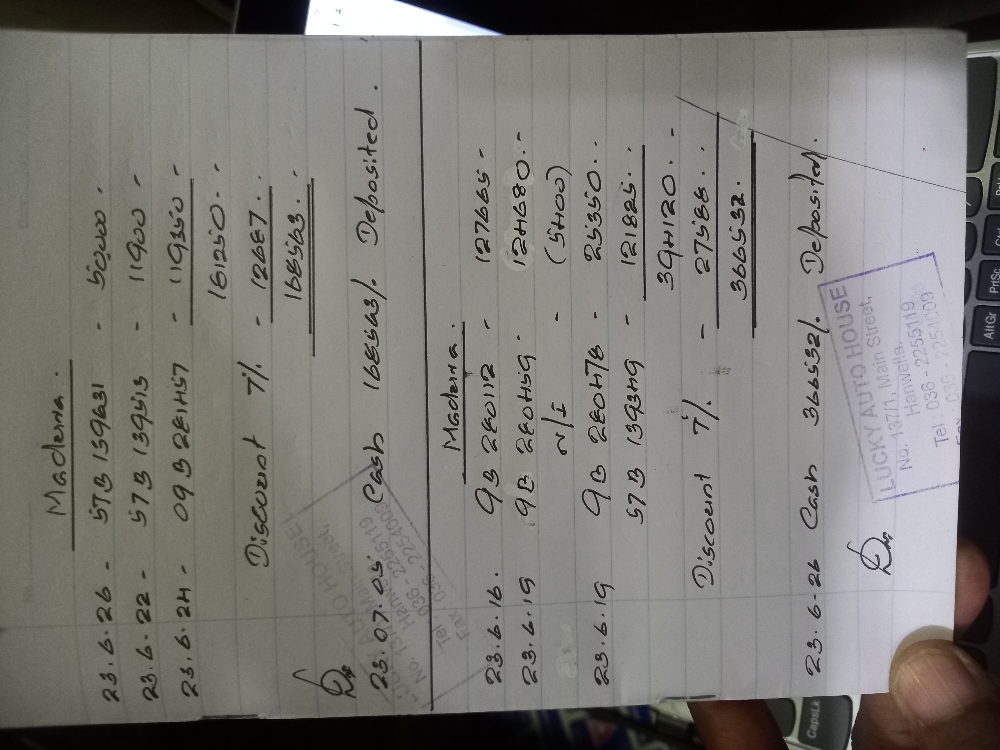 Maderna.
23.6.26 - 57B 139631 - 50000.-
23.6.22 - 57B 139513 - 11900 -
23.6.24 - 09B 281457 - 119350 -
181250.-
Discount 7% - 12687.
168563.-
23.07.05 Cash 168563/. Deposited.
LUCKY AUTO HOUSE
No. 137/1, Main Street,
Hanwella.
Tel : 036 - 2255119
Fax : 036 - 2254009
Maderna.
23.6.16. 9B 280112 - 127665 -
23.6.19 9B 280459. 124680.-
N/I - (5400)
23.6.19 9B 280478 - 25350..
57B 139349 - 121825..
394120.-
Discount 7% - 27588..
366532.
23.6-26 Cash 366532/. Deposited.
LUCKY AUTO HOUSE
No. 137/1, Main Street,
Hanwella.
Tel : 036 - 2255119
036 - 2254009